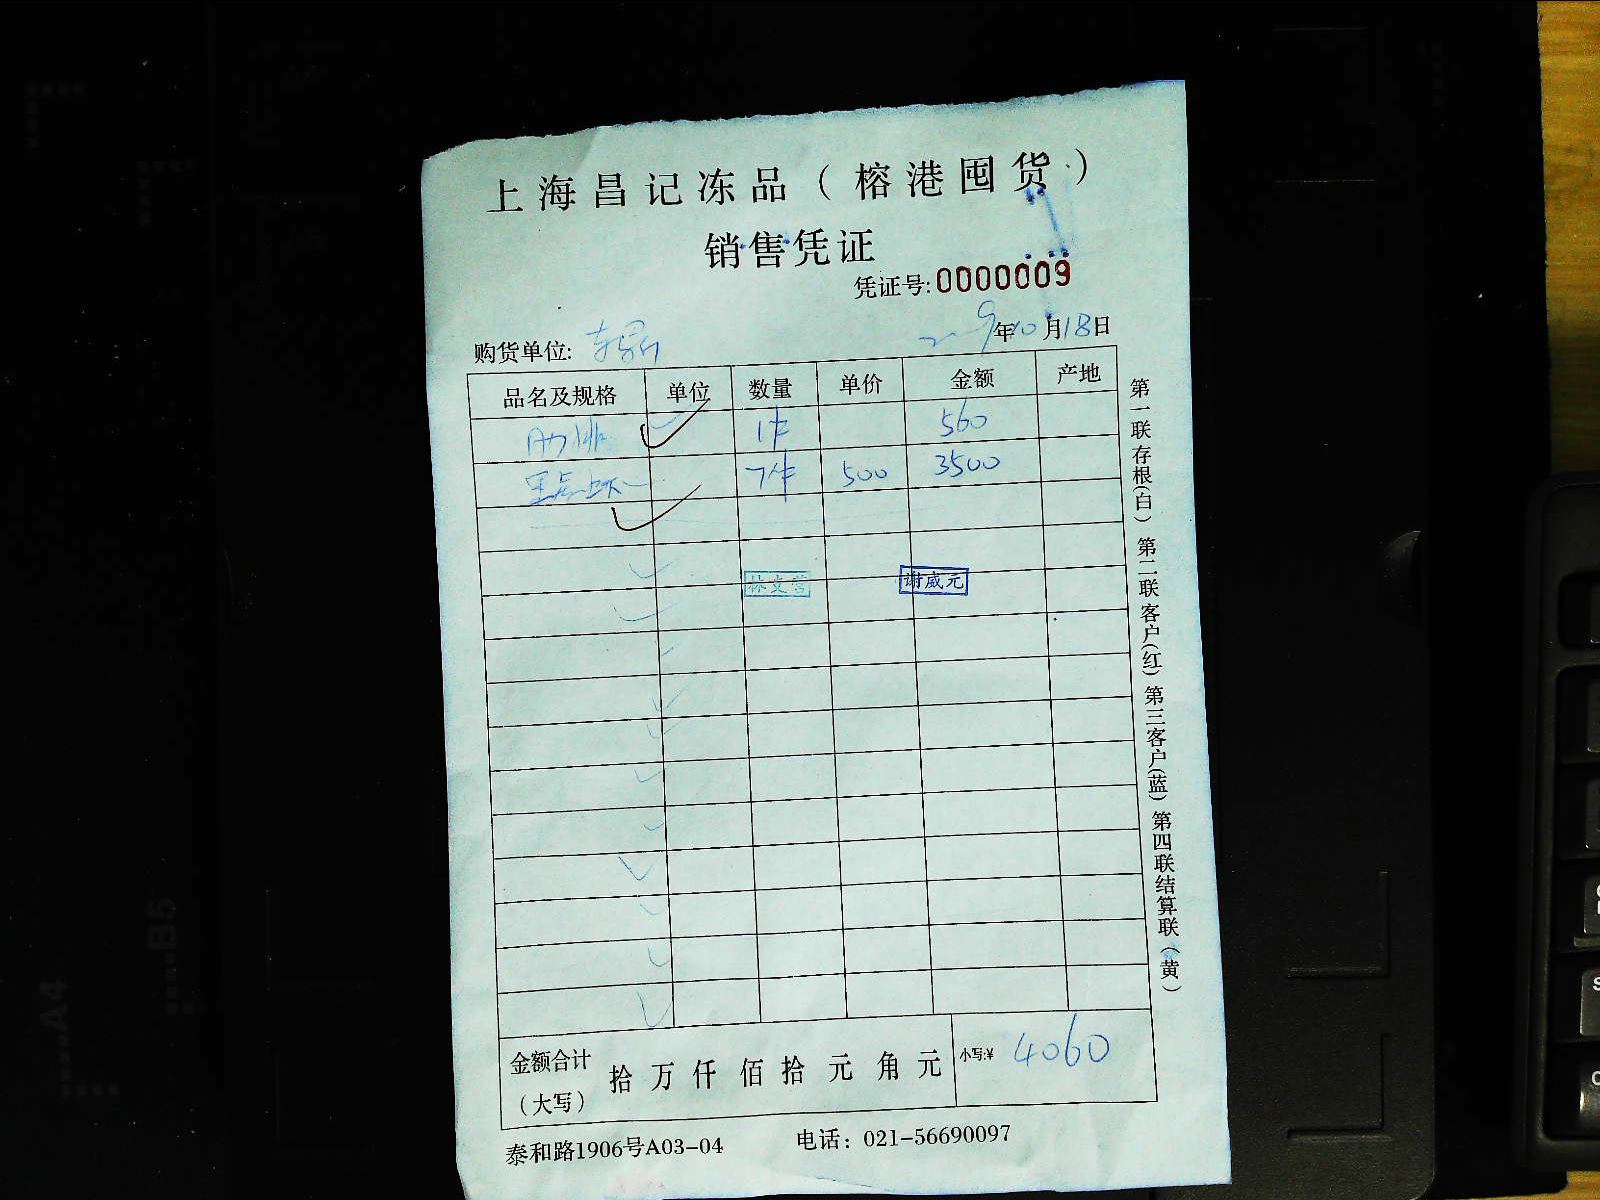 上海昌记冻品(榕港囤货)
销售凭证
凭证号:0000009
购货单位: 年10月18日
品名及规格 单位 数量 单价 金额 产地
肋排 1件 560
黑虎虾 7件 500 3500
林文营 谢威元
金额合计(大写) 拾万仟佰拾元角元 小写:¥ 4060
泰和路1906号A03-04 电话:021-56690097
第一联存根(白) 第二联客户(红) 第三客户(蓝) 第四联结算联(黄)
A4
B5